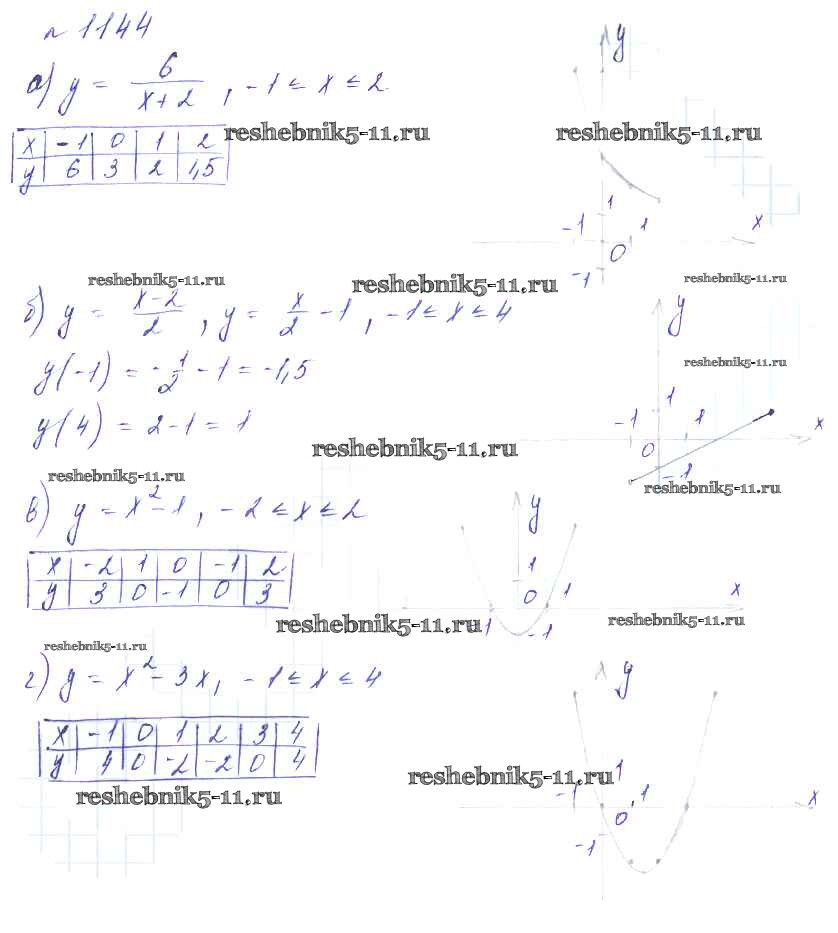 № 1144
а) y = 6/(x+2), -1 ≤ x ≤ 2
x | -1 | 0 | 1 | 2
y | 6 | 3 | 2 | 1,5
reshebnik5-11.ru
y
reshebnik5-11.ru
1
-1 1 x
0
-1
reshebnik5-11.ru
reshebnik5-11.ru
reshebnik5-11.ru
б) y = (x-2)/2, y = x/2 - 1, -1 ≤ x ≤ 4
y(-1) = -1/2 - 1 = -1,5
y(4) = 2-1 = 1
y
reshebnik5-11.ru
1
-1 1 x
0
-1
reshebnik5-11.ru
reshebnik5-11.ru
reshebnik5-11.ru
в) y = x² - 1, -2 ≤ x ≤ 2
x | -2 | 1 | 0 | -1 | 2
y | 3 | 0 | -1 | 0 | 3
y
1
0 1 x
1 -1
reshebnik5-11.ru
reshebnik5-11.ru
reshebnik5-11.ru
г) y = x² - 3x, -1 ≤ x ≤ 4
x | -1 | 0 | 1 | 2 | 3 | 4
y | 4 | 0 | -2 | -2 | 0 | 4
y
reshebnik5-11.ru
1
-1 1 x
0
-1
reshebnik5-11.ru